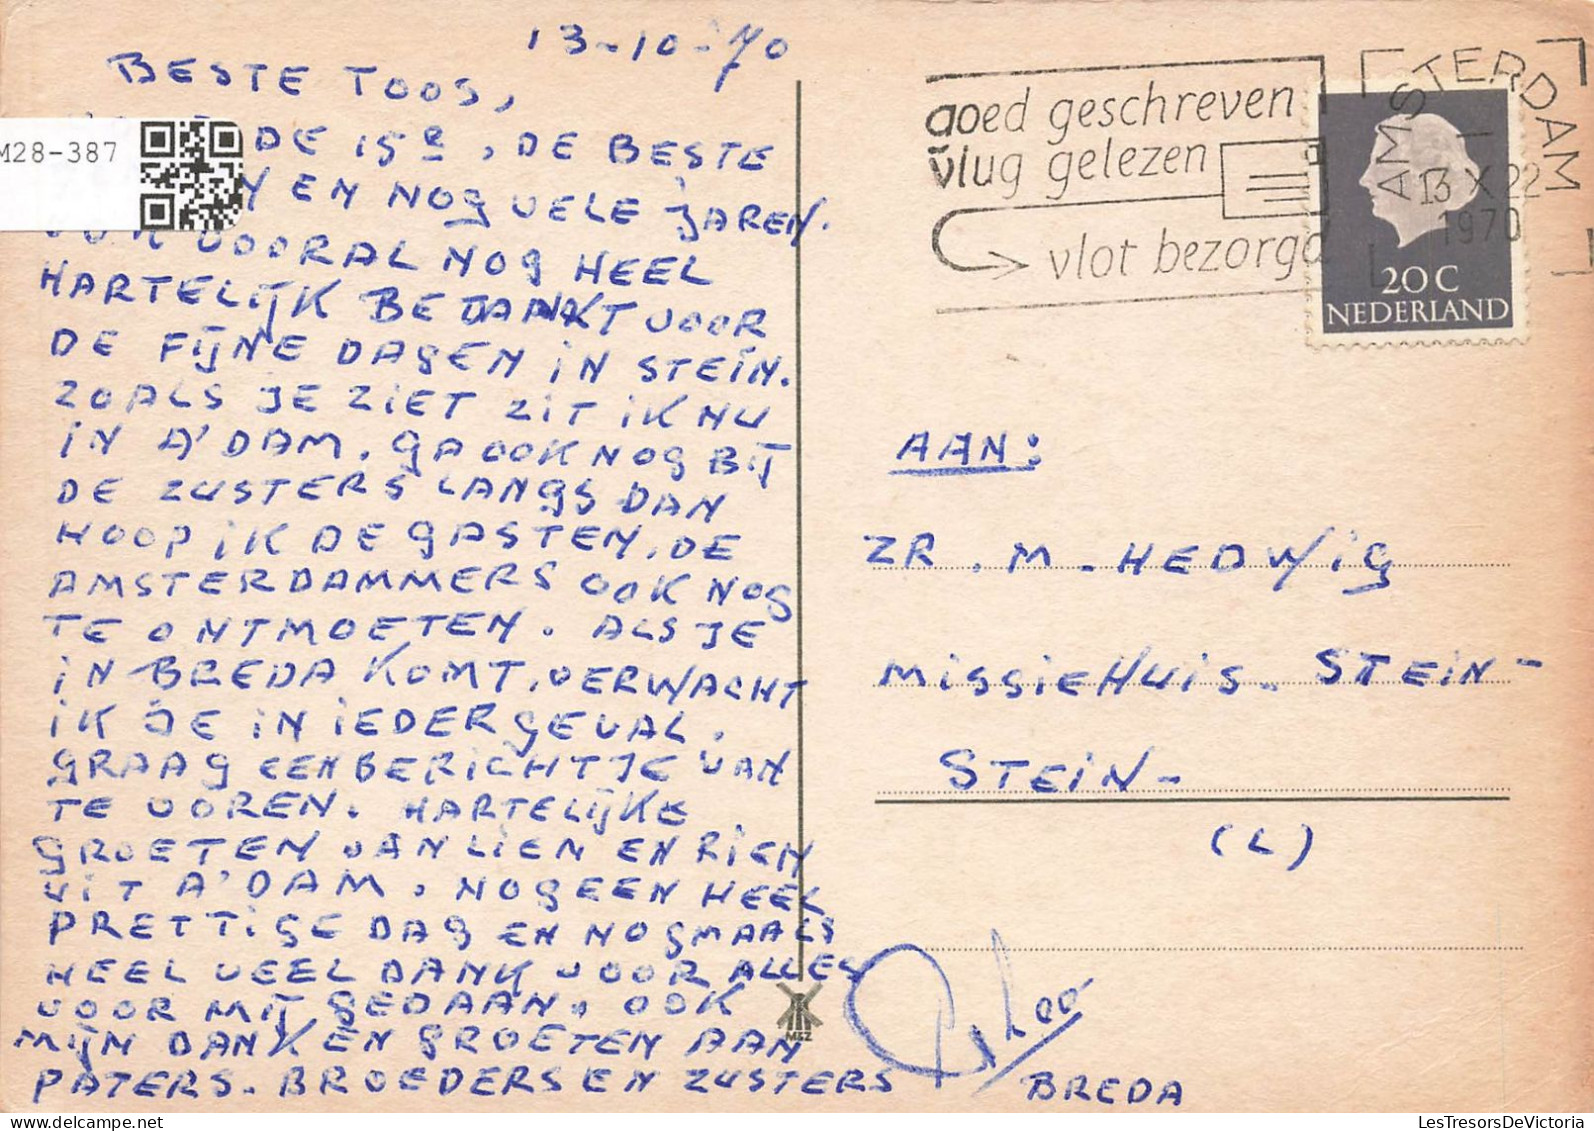 13-10-70
BESTE TOOS,
DE 15e, DE BESTE
EN NOG VELE JAREN.
VOORAL NOG HEEL
HARTELIJK BEDANKT VOOR
DE FIJNE DAGEN IN STEIN.
ZOALS JE ZIET ZIT IK NU
IN A'DAM. GA OOK NOG BIJ
DE ZUSTERS LANGS DAN
HOOP IK DE GASTEN, DE
AMSTERDAMMERS OOK NOG
TE ONTMOETEN. ALS JE
IN BREDA KOMT, VERWACHT
IK JE IN IEDER GEVAL.
GRAAG EEN BERICHTJE VAN
TE VOREN. HARTELIJKE
GROETEN VAN LIEN EN RIEN
UIT A'DAM. NOG EEN HEEL
PRETTIGE DAG EN NOGMAALS
HEEL VEEL DANK VOOR ALLES
VOOR MIJ GEDAAN. OOK
MIJN DANK EN GROETEN AAN
PATERS. BROEDERS EN ZUSTERS
BREDA
M28-387
goed geschreven
vlug gelezen
vlot bezorgd
AMSTERDAM
13 X 22
1970
20 C
NEDERLAND
AAN:
ZR. M. HEDWIG
MISSIEHUIS. STEIN-
STEIN-
(L)
M&Z
LesTresorsDeVictoria